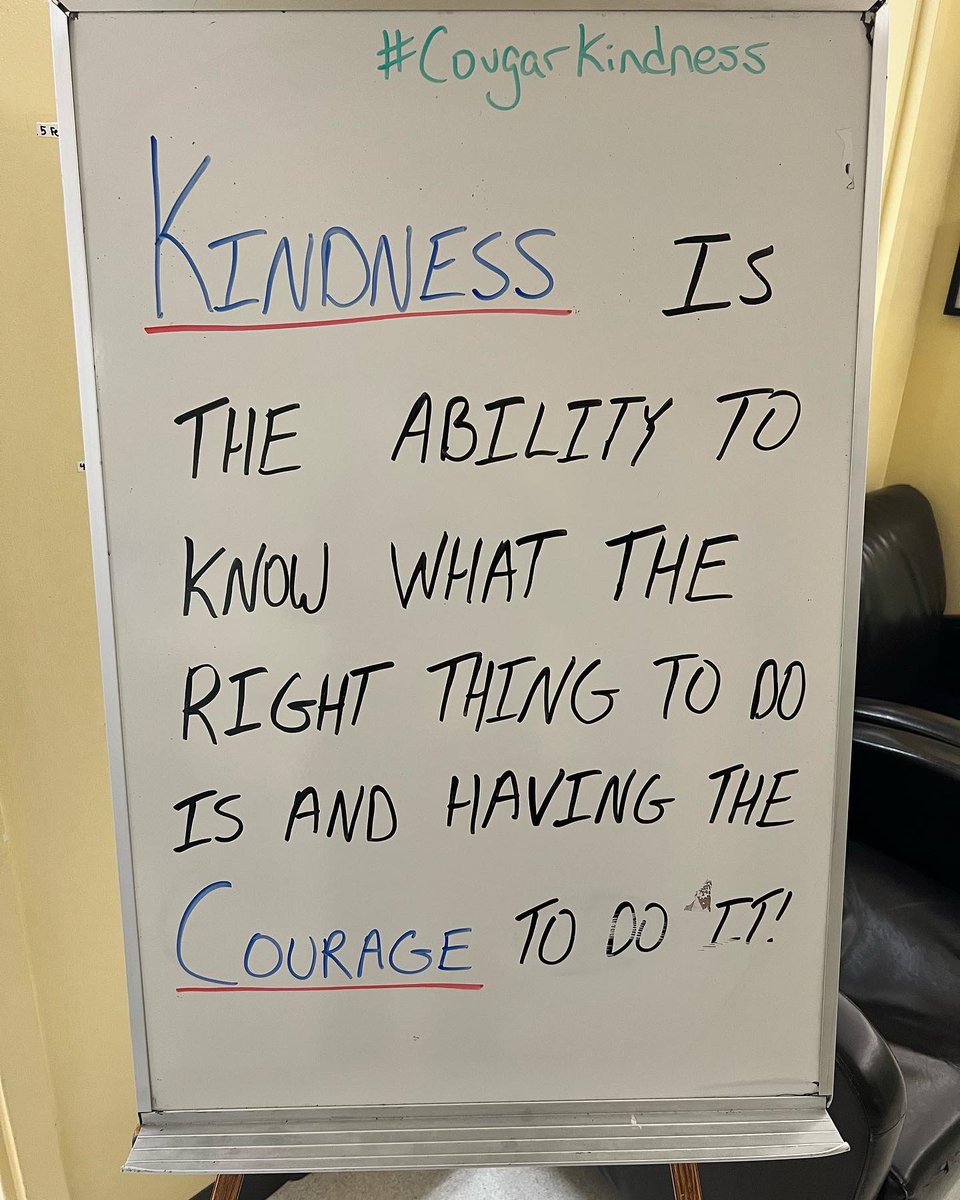 #CougarKindness
KINDNESS IS
THE ABILITY TO
KNOW WHAT THE
RIGHT THING TO DO
IS AND HAVING THE
COURAGE TO DO IT!
5 Fe
4